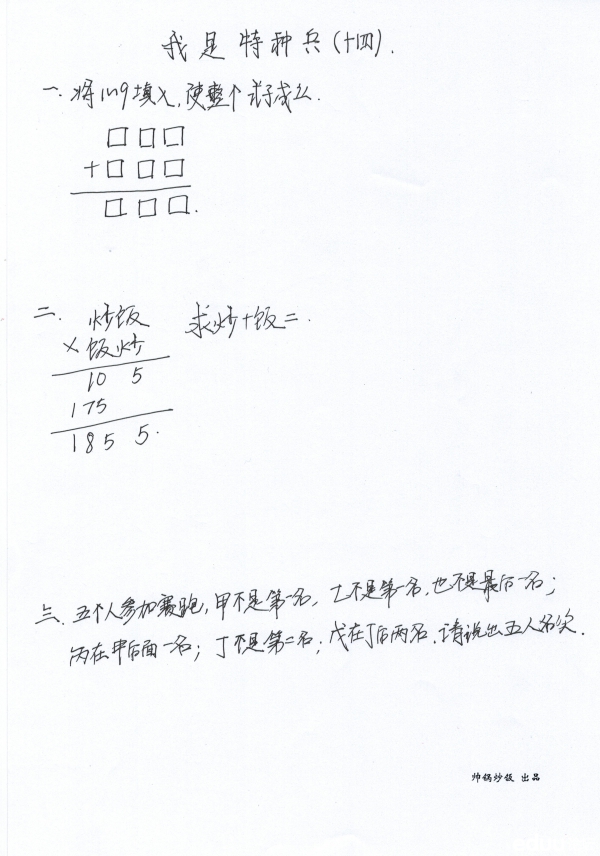 我是特种兵(十四).
一.将1~9填入,使整个式子成立.
□□□
+□□□
□□□.
二. 炒饭 求炒+饭=.
×饭炒
10 5
175
185 5.
三.五个人参加赛跑,甲不是第一名,乙不是第一名,也不是最后一名;
丙在甲后面一名;丁不是第二名;戊在丁后两名.请说出五人名次.
帅锅炒饭 出品